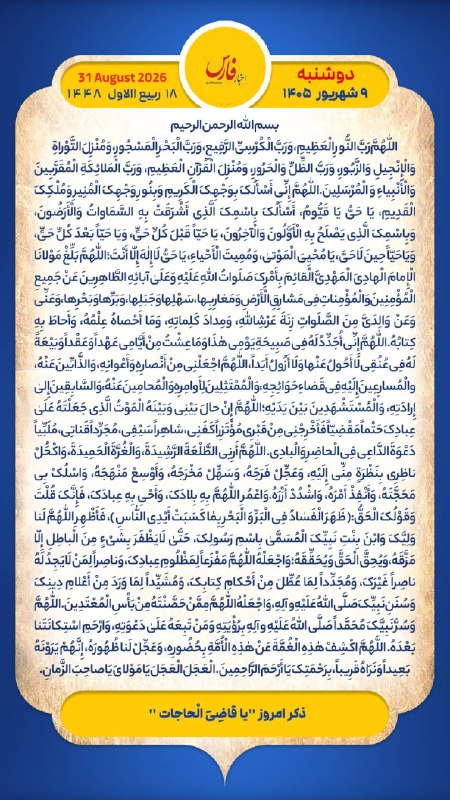 اخبار فارس
دوشنبه
۹ شهریور ۱۴۰۵
31 August 2026
۱۸ ربیع الاول ۱۴۴۸
بسم الله الرحمن الرحیم
اللّٰهُمَّ رَبَّ النُّورِ الْعَظِيمِ، وَرَبَّ الْكُرْسِيِّ الرَّفِيعِ، وَرَبَّ الْبَحْرِ الْمَسْجُورِ، وَمُنْزِلَ التَّوْراةِ
وَالْإِنْجِيلِ وَالزَّبُورِ، وَرَبَّ الظِّلِّ وَالْحَرُورِ، وَمُنْزِلَ الْقُرْآنِ الْعَظِيمِ، وَرَبَّ الْمَلائِكَةِ الْمُقَرَّبِينَ
وَالْأَنْبِياءِ وَ الْمُرْسَلِينَ، اللّٰهُمَّ إِنِّي أَسْأَلُكَ بِوَجْهِكَ الْكَرِيمِ وَبِنُورِ وَجْهِكَ الْمُنِيرِ وَمُلْكِكَ
الْقَدِيمِ، يَا حَيُّ يَا قَيُّومُ، أَسْأَلُكَ بِاسْمِكَ الَّذِي أَشْرَقَتْ بِهِ السَّمَاوَاتُ وَالْأَرَضُونَ،
وَبِاسْمِكَ الَّذِي يَصْلَحُ بِهِ الْأَوَّلُونَ وَالْآخِرُونَ، يَا حَيّاً قَبْلَ كُلِّ حَيٍّ، وَيَا حَيّاً بَعْدَ كُلِّ حَيٍّ،
وَيَا حَيّاً حِينَ لَا حَيَّ، يَا مُحْيِيَ الْمَوْتىٰ، وَمُمِيتَ الْأَحْياءِ، يَا حَيُّ لَاإِلٰهَ إِلّا أَنْتَ؛ اللّٰهُمَّ بَلِّغْ مَوْلانَا
الْإِمامَ الْهادِيَ الْمَهْدِيَّ الْقائِمَ بِأَمْرِكَ صَلَواتُ اللّٰهِ عَلَيْهِ وَعَلَىٰ آبائِهِ الطَّاهِرِينَ عَنْ جَمِيعِ
الْمُؤْمِنِينَ وَالْمُؤْمِناتِ فِي مَشارِقِ الْأَرْضِ وَمَغارِبِها، سَهْلِها وَجَبَلِها، وَبَرِّها وَبَحْرِها، وَعَنِّي
وَعَنْ وَالِدَيَّ مِنَ الصَّلَواتِ زِنَةَ عَرْشِ اللّٰهِ، وَمِدادَ كَلِماتِهِ، وَمَا أَحْصاهُ عِلْمُهُ، وَأَحاطَ بِهِ
كِتابُهُ. اللّٰهُمَّ إِنِّي أُجَدِّدُ لَهُ فِي صَبِيحَةِ يَوْمِي هٰذَا وَمَا عِشْتُ مِنْ أَيَّامِي عَهْداً وَعَقْداً وَبَيْعَةً
لَهُ فِي عُنُقِي لَاأَحُولُ عَنْها وَلَا أَزُولُ أَبَداً، اللّٰهُمَّ اجْعَلْنِي مِنْ أَنْصارِهِ وَأَعْوانِهِ، وَالذَّابِّينَ عَنْهُ،
وَالْمُسارِعِينَ إِلَيْهِ فِي قَضاءِ حَوَائِجِهِ، وَالْمُمْتَثِلِينَ لِأَوامِرِهِ وَالْمُحامِينَ عَنْهُ، وَالسَّابِقِينَ إِلىٰ
إِرادَتِهِ، وَالْمُسْتَشْهَدِينَ بَيْنَ يَدَيْهِ؛ اللّٰهُمَّ إِنْ حالَ بَيْنِي وَبَيْنَهُ الْمَوْتُ الَّذِي جَعَلْتَهُ عَلَىٰ
عِبادِكَ حَتْماً مَقْضِيّاً فَأَخْرِجْنِي مِنْ قَبْرِي مُؤْتَزِراً كَفَنِي، شاهِراً سَيْفِي، مُجَرِّداً قَناتِي، مُلَبِّياً
دَعْوَةَ الدَّاعِي فِي الْحاضِرِ وَالْبادِي. اللّٰهُمَّ أَرِنِي الطَّلْعَةَ الرَّشِيدَةَ، وَالْغُرَّةَ الْحَمِيدَةَ، وَاكْحُلْ
ناظِرِي بِنَظْرَةٍ مِنِّي إِلَيْهِ، وَعَجِّلْ فَرَجَهُ، وَسَهِّلْ مَخْرَجَهُ، وَأَوْسِعْ مَنْهَجَهُ، وَاسْلُكْ بِي
مَحَجَّتَهُ، وَأَنْفِذْ أَمْرَهُ، وَاشْدُدْ أَزْرَهُ، وَاعْمُرِ اللّٰهُمَّ بِهِ بِلادَكَ، وَأَحْيِ بِهِ عِبادَكَ، فَإِنَّكَ قُلْتَ
وَقَوْلُكَ الْحَقُّ: (ظَهَرَ الْفَسادُ فِي الْبَرِّ وَ الْبَحْرِ بِمٰا كَسَبَتْ أَيْدِي النّٰاسِ)، فَأَظْهِرِ اللّٰهُمَّ لَنا
وَلِيَّكَ وَابْنَ بِنْتِ نَبِيِّكَ الْمُسَمَّىٰ بِاسْمِ رَسُولِكَ، حَتَّىٰ لَا يَظْفَرَ بِشَيْءٍ مِنَ الْباطِلِ إِلّا
مَزَّقَهُ، وَيُحِقَّ الْحَقَّ وَيُحَقِّقَهُ؛ وَاجْعَلْهُ اللّٰهُمَّ مَفْزَعاً لِمَظْلُومِ عِبادِكَ، وَناصِراً لِمَنْ لَايَجِدُ لَهُ
ناصِراً غَيْرَكَ، وَمُجَدِّداً لِمَا عُطِّلَ مِنْ أَحْكامِ كِتابِكَ، وَمُشَيِّداً لِمَا وَرَدَ مِنْ أَعْلامِ دِينِكَ
وَسُنَنِ نَبِيِّكَ صَلَّى اللّٰهُ عَلَيْهِ وَآلِهِ، وَاجْعَلْهُ اللّٰهُمَّ مِمَّنْ حَصَّنْتَهُ مِنْ بَأْسِ الْمُعْتَدِينَ. اللّٰهُمَّ
وَسُرَّ نَبِيَّكَ مُحَمَّداً صَلَّى اللّٰهُ عَلَيْهِ وَآلِهِ بِرُؤْيَتِهِ وَمَنْ تَبِعَهُ عَلَىٰ دَعْوَتِهِ، وَارْحَمِ اسْتِكانَتَنا
بَعْدَهُ. اللّٰهُمَّ اكْشِفْ هٰذِهِ الْغُمَّةَ عَنْ هٰذِهِ الْأُمَّةِ بِحُضُورِهِ، وَعَجِّلْ لَنا ظُهُورَهُ، إِنَّهُمْ يَرَوْنَهُ
بَعِيداً وَنَرَاهُ قَرِيباً، بِرَحْمَتِكَ يَا أَرْحَمَ الرَّاحِمِينَ. الْعَجَلَ الْعَجَلَ يَا مَوْلايَ يَا صاحِبَ الزَّمانِ.
ذکر امروز "یا قاضِیَ الْحاجات "